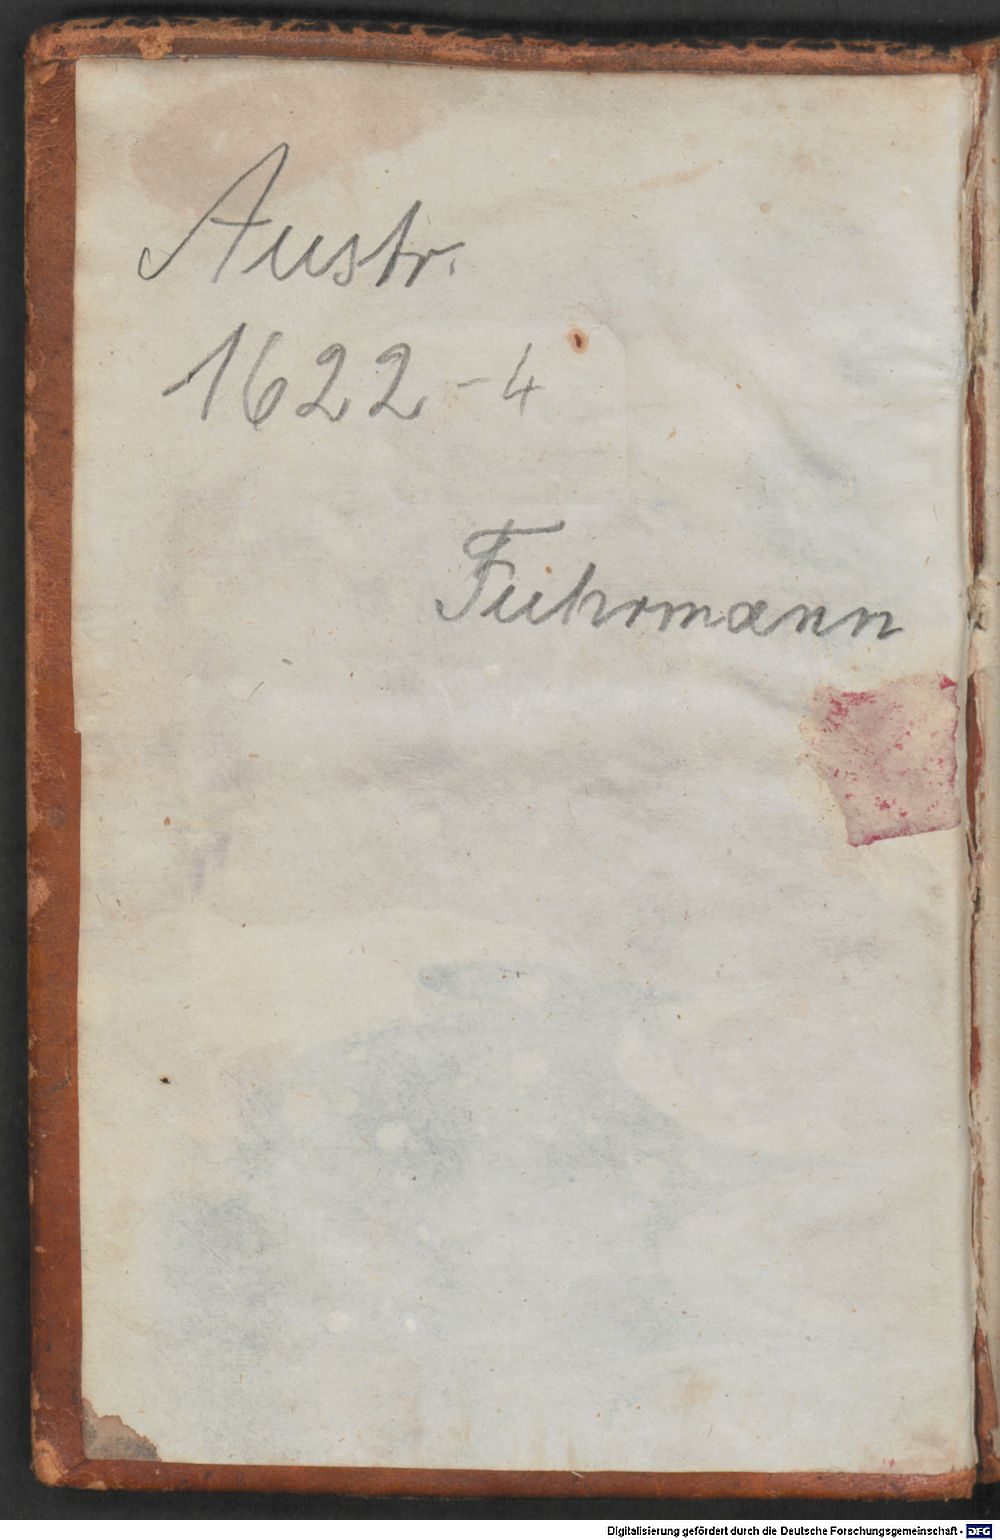 Austr.
1622-4
Fuhrmann
Digitalisierung gefördert durch die Deutsche Forschungsgemeinschaft - DFG